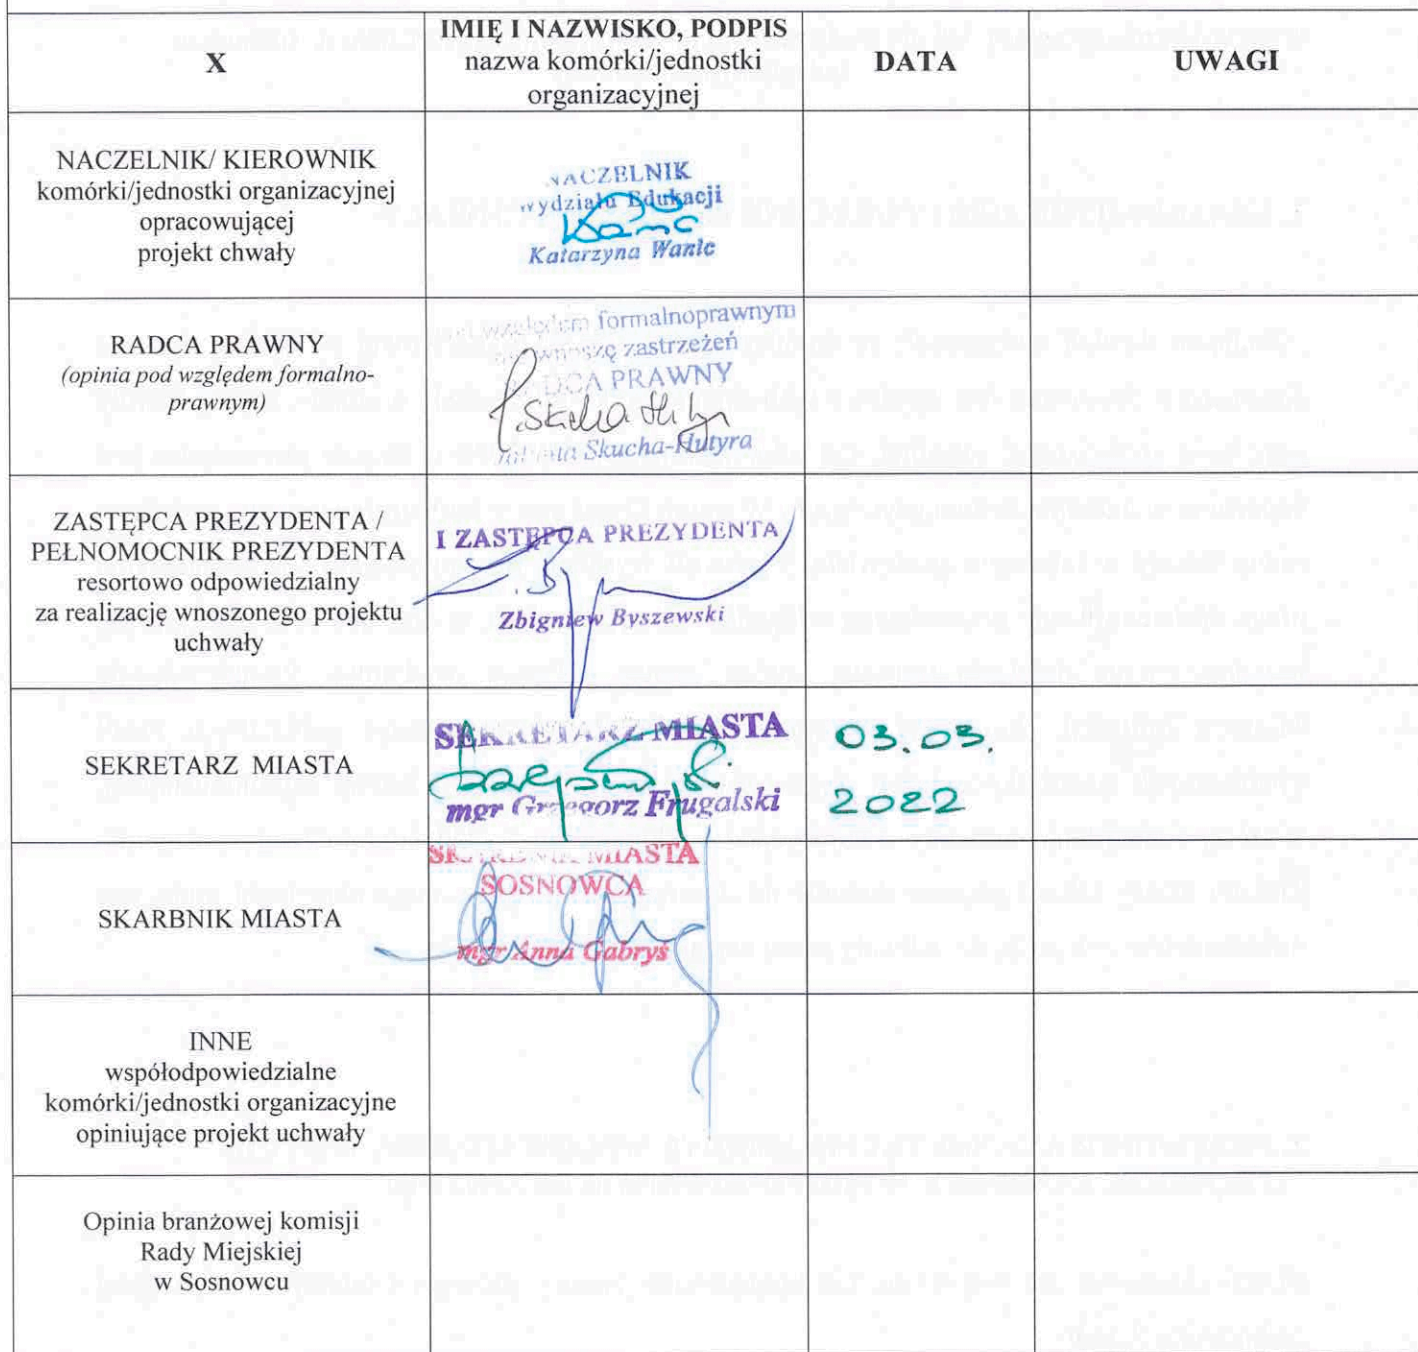 X
IMIĘ I NAZWISKO, PODPIS
nazwa komórki/jednostki
organizacyjnej
DATA
UWAGI
NACZELNIK/ KIEROWNIK
komórki/jednostki organizacyjnej
opracowującej
projekt chwały
NACZELNIK
Wydziału Edukacji
Katarzyna Wanic
RADCA PRAWNY
(opinia pod względem formalno-
prawnym)
względem formalnoprawnym
wnoszę zastrzeżeń
RADCA PRAWNY
Skucha-Hutyra
ZASTĘPCA PREZYDENTA /
PEŁNOMOCNIK PREZYDENTA
resortowo odpowiedzialny
za realizację wnoszonego projektu
uchwały
I ZASTĘPCA PREZYDENTA
Zbigniew Byszewski
SEKRETARZ MIASTA
SEKRETARZ MIASTA
mgr Grzegorz Frugalski
03.03.
2022
SKARBNIK MIASTA
SKARBNIK MIASTA
SOSNOWCA
mgr Anna Gabryś
INNE
współodpowiedzialne
komórki/jednostki organizacyjne
opiniujące projekt uchwały
Opinia branżowej komisji
Rady Miejskiej
w Sosnowcu